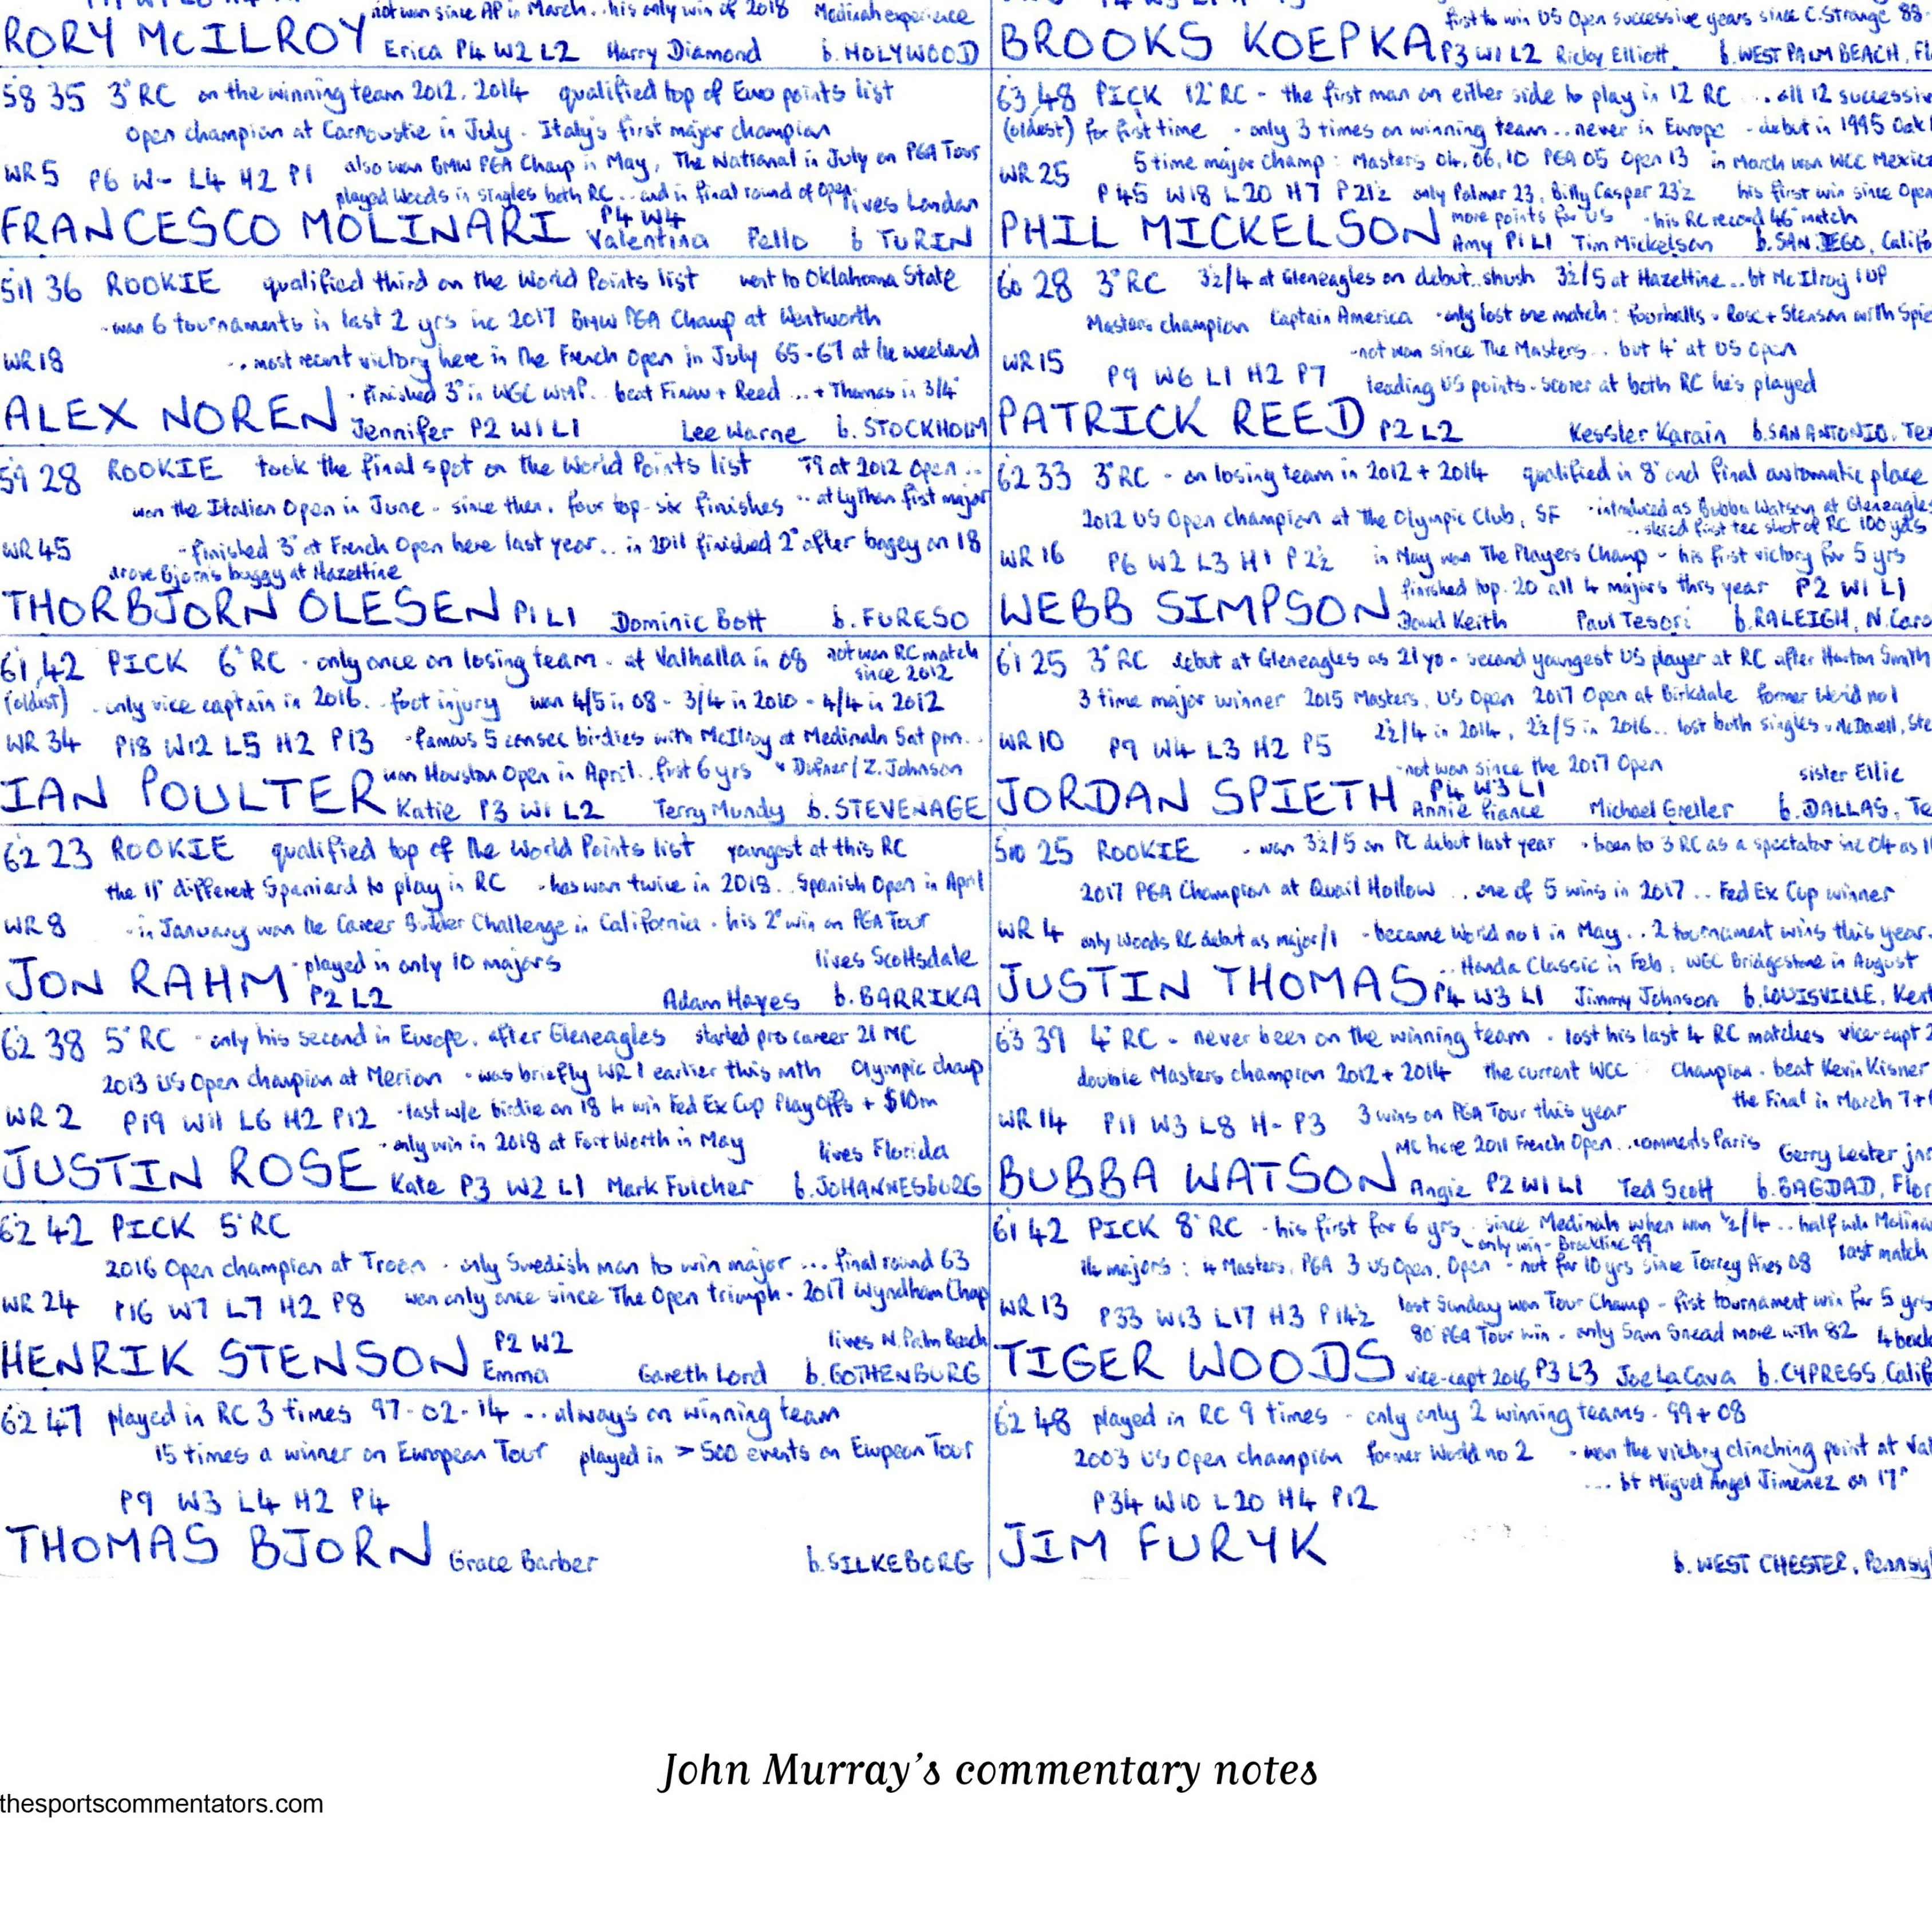 not won since AP in March.. his only win of 2018 Medinah experience
RORY McILROY Erica P4 W2 L2 Harry Diamond b. HOLYWOOD
58 35 3° RC on the winning team 2012, 2014 qualified top of Euro points list
Open champion at Carnoustie in July - Italy's first major champion
also won BMW PGA Champ in May, The National in July on PGA Tour
WR 5 P6 W- L4 H2 P1
played Woods in singles both RC... and in final round of Open. lives London
P4 W4
FRANCESCO MOLINARI Valentina Pello b TURIN
511 36 ROOKIE qualified third on the World Points list went to Oklahoma State
- won 6 tournaments in last 2 yrs inc 2017 BMW PGA Champ at Wentworth
WR 18 .. most recent victory here in the French Open in July 65-67 at the weekend
· finished 3° in WGC WMP. beat Finau + Reed ... + Thomas in 3/4°
ALEX NOREN Jennifer P2 W1 L1 Lee Warne b. STOCKHOLM
59 28 ROOKIE took the final spot on the World Points list T9 at 2012 Open ..
won the Italian Open in June - since then, four top-six finishes .. at Lytham first major
WR 45 - finished 3° at French Open here last year .. in 2011 finished 2° after bogey on 18
drove Bjorn's buggy at Hazeltine
THORBJORN OLESEN P1 L1 Dominic Bott b. FURESO
61,42 PICK 6° RC · only once on losing team - at Valhalla in 08 not won RC match
since 2012
(oldest) - only vice captain in 2016. - foot injury won 4/5 in 08 - 3/4 in 2010 - 4/4 in 2012
WR 34 P18 W12 L5 H2 P13 - famous 5 consec birdies with McIlroy at Medinah Sat pm..
won Houston Open in April.. first 6 yrs v Dufner / Z. Johnson
IAN POULTER Katie P3 W1 L2 Terry Mundy b. STEVENAGE
62 23 ROOKIE qualified top of the World Points list youngest at this RC
the 11° different Spaniard to play in RC - has won twice in 2018.. Spanish Open in April
WR 8 - in January won the Career Builder Challenge in California - his 2° win on PGA Tour
- played in only 10 majors lives Scottsdale
JON RAHM P2 L2 Adam Hayes b. BARRIKA
62 38 5° RC - only his second in Europe, after Gleneagles started pro career 21 MC
2013 US Open champion at Merion - was briefly WR 1 earlier this mth Olympic champ
WR 2 P19 W11 L6 H2 P12 - last w/e birdie on 18 to win Fed Ex Cup Play Offs + $10m
- only win in 2018 at Fort Worth in May lives Florida
JUSTIN ROSE Kate P3 W2 L1 Mark Fulcher b. JOHANNESBURG
62 42 PICK 5° RC
2016 Open champion at Troon - only Swedish man to win major ... final round 63
WR 24 P16 W7 L7 H2 P8 won only once since The Open triumph - 2017 Wyndham Champ
P2 W2 lives N. Palm Beach
HENRIK STENSON Emma Gareth Lord b. GOTHENBURG
62 47 played in RC 3 times 97-02-14 ... always on winning team
15 times a winner on European Tour played in > 500 events on European Tour
P9 W3 L4 H2 P4
THOMAS BJORN Grace Barber b. SILKEBORG
first to win US Open successive years since C.Strange 88-
BROOKS KOEPKA P3 W1 L2 Ricky Elliott. b. WEST PALM BEACH,
63,48 PICK 12° RC - the first man on either side to play in 12 RC ... all 12 successiv
(oldest) for first time - only 3 times on winning team .. never in Europe - debut in 1995 Oak
5 time major champ: Masters 04, 06, 10 PGA 05 Open 13 in March won WGC Mexico
WR 25 P45 W18 L20 H7 P21½ only Palmer 23, Billy Casper 23½ his first win since Open
more points for US - his RC record 46° match
PHIL MICKELSON Amy P1 L1 Tim Mickelson b. SAN DIEGO, Califo
60 28 3° RC 3½/4 at Gleneagles on debut.. shush 3½/5 at Hazeltine .. bt McIlroy 1UP
Masters champion Captain America - only lost one match: fourballs v Rose + Stenson with Spie
-not won since The Masters... but 4° at US Open
WR 15 P9 W6 L1 H2 P7 leading US points-scorer at both RC he's played
PATRICK REED P2 L2 Kessler Karain b. SAN ANTONIO, Te
62 33 3° RC - on losing team in 2012 + 2014 qualified in 8° and final automatic place
2012 US Open champion at The Olympic Club, SF - introduced as Bubba Watson at Gleneagles
.. skied first tee shot of RC 100 years
WR 16 P6 W2 L3 H1 P2½ in May won The Players Champ - his first victory for 5 yrs
finished top-20 all 4 majors this year P2 W1 L1
WEBB SIMPSON Dowd Keith Paul Tesori b. RALEIGH, N. Caro
61 25 3° RC debut at Gleneagles as 21 yo - second youngest US player at RC after Horton Smith
3 time major winner 2015 Masters, US Open 2017 Open at Birkdale former World no 1
WR 10 P9 W4 L3 H2 P5 2½/4 in 2014, 2½/5 in 2016.. lost both singles v McDowell, Ste
-not won since the 2017 Open sister Ellie
P4 W3 L1
JORDAN SPIETH Annie fiance Michael Greller b. DALLAS, Te
510 25 ROOKIE - won 3½/5 on PC debut last year - been to 3 RC as a spectator inc 04 as
2017 PGA Champion at Quail Hollow .. one of 5 wins in 2017 .. Fed Ex Cup winner
WR 4 only Woods RC debut as major/1 - became World no 1 in May.. 2 tournament wins this year.
.. Honda Classic in Feb, WGC Bridgestone in August
JUSTIN THOMAS P4 W3 L1 Jimmy Johnson b. LOUISVILLE, Kent
63 39 4° RC - never been on the winning team - lost his last 4 RC matches vice-capt 2
double Masters champion 2012 + 2014 the current WGC Champion - beat Kevin Kisner
the Final in March 7+
WR 14 P11 W3 L8 H- P3 3 wins on PGA Tour this year
MC here 2011 French Open.. comments Paris Gerry Lester jnr
BUBBA WATSON Angie P2 W1 L1 Ted Scott b. BAGDAD, Flor
61 42 PICK 8° RC - his first for 6 yrs - since Medinah when won ½/4 .. half with Molina
- only win - Brookline 99 last match
14 majors: 4 Masters, PGA 3 US Open, Open - not for 10 yrs since Torrey Pines 08
WR 13 P33 W13 L17 H3 P14½ last Sunday won Tour Champ - first tournament win for 5 yrs
80° PGA Tour win - only Sam Snead more with 82 4 back
TIGER WOODS vice-capt 2016 P3 L3 Joe LaCava b. CYPRESS, Calif
62 48 played in RC 9 times - only only 2 winning teams - 99 + 08
2003 US Open champion former World no 2 - won the victory clinching point at Val
... bt Miguel Angel Jimenez on 17°
P34 W10 L20 H4 P12
JIM FURYK b. WEST CHESTER, Pennsyl
John Murray's commentary notes
thesportscommentators.com